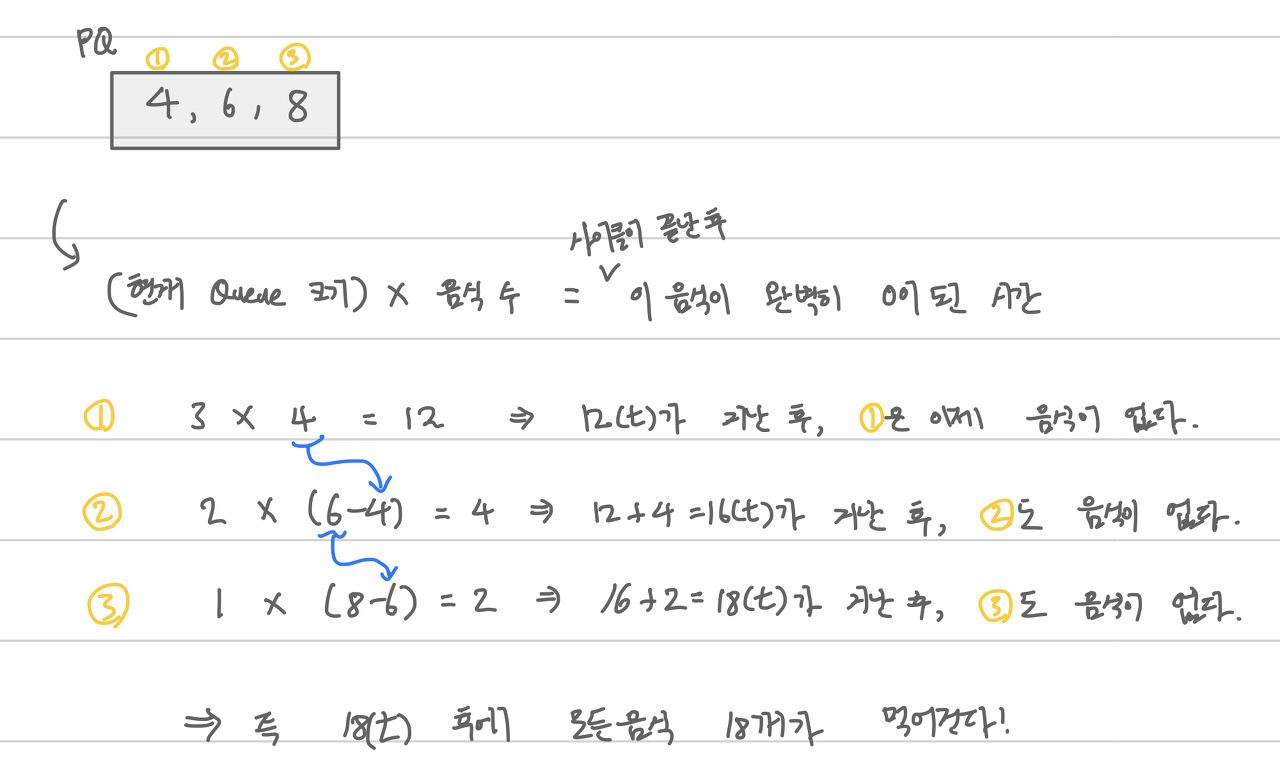 PQ
① ② ③
4, 6, 8
사이클이 끝난 후
(현재 Queue 크기) × 음식 수 = ∨ 이 음식이 완벽히 0이 되는 시간
① 3 × 4 = 12 ⇒ 12(t)가 지난 후, ①은 이제 음식이 없다.
② 2 × (6-4) = 4 ⇒ 12+4=16(t)가 지난 후, ②도 음식이 없다.
③ 1 × (8-6) = 2 ⇒ 16+2=18(t)가 지난 후, ③도 음식이 없다.
⇒ 즉 18(t) 후에 모든음식 18개가 먹어진다!